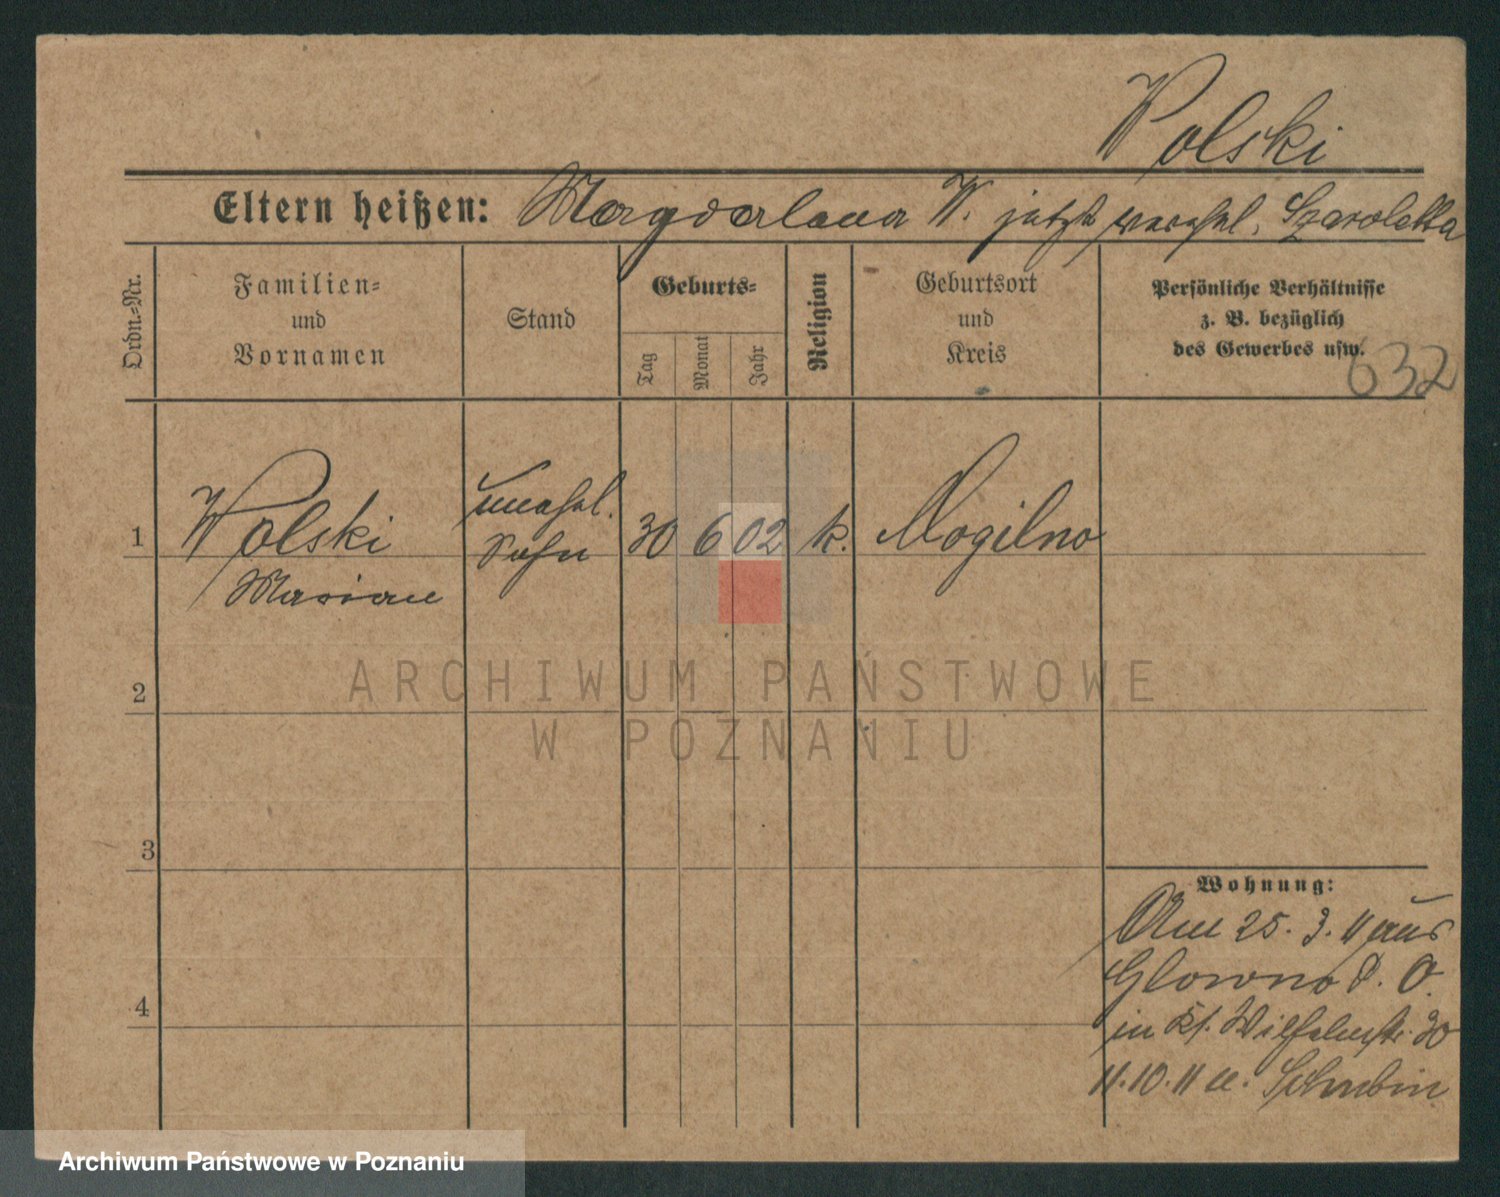 Wolski
Eltern heißen: Magdalena W. jetzt verehel. Szaroletta
Ordn.-Nr.
Familien-
und
Vornamen
Stand
Geburts-
Tag
Monat
Jahr
Religion
Geburtsort
und
Kreis
Persönliche Verhältnisse
z. B. bezüglich
des Gewerbes usw.
632
1
Wolski
Marian
unehel.
Sohn
30 6 02 k. Mogilno
2
ARCHIWUM PAŃSTWOWE
W POZNANIU
3
4
Wohnung:
Am 25. 3. 11 aus
Glowno P. O.
in Kl. Wilhelmstr. 30
11.10.11 n. Schubin
Archiwum Państwowe w Poznaniu